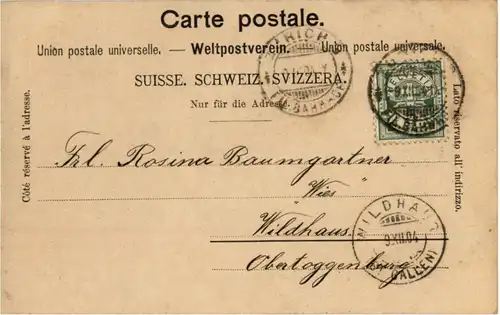 Carte postale.
Union postale universelle. — Weltpostverein. — Union postale universale.
SUISSE. SCHWEIZ. SVIZZERA.
Nur für die Adresse.
Côté réservé à l'adresse.
Lato riservato all' indirizzo.
Frl. Rosina Baumgartner
"Wies"
Wildhaus.
Obertoggenburg
WILDHAUS
9.XII.04
(ST. GALLEN)